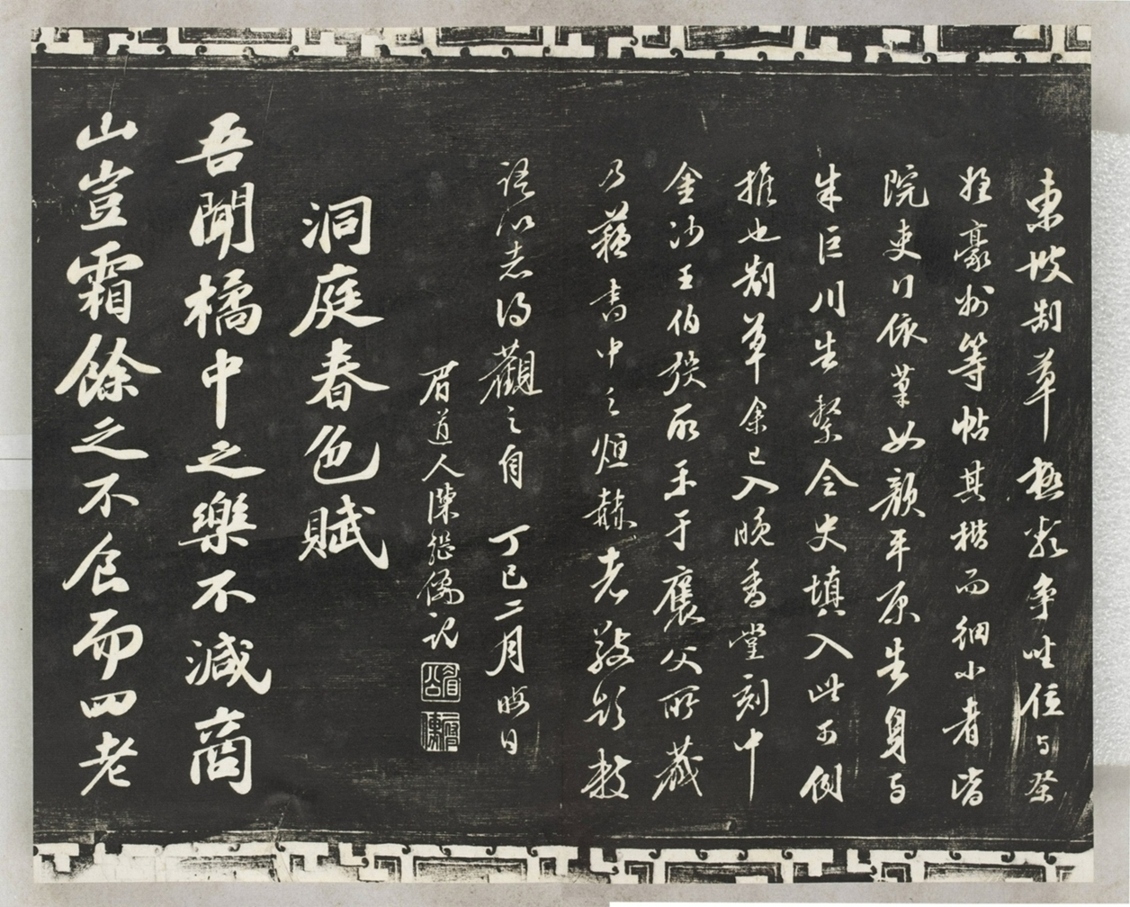 東坡制草極類爭坐位与祭
姪豪州等帖其楷而細小者皆
院吏口依草如顏平原告身与
朱巨川告繫令史填入此可例
推也制草余已入晚香堂刻中
金沙王伯弢所示于褱父所藏
乃蘇書中之烜赫者敬題數
語以志得觀之自 丁巳二月晦日
眉道人陳繼儒記
眉公
洞庭春色賦
吾聞橘中之樂不減商
山豈霜餘之不食而四老